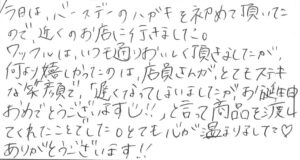 今日は、バースデーのハガキを初めて頂いた
ので、近くのお店に行きました。
ワッフルは、いつも通りおいしく頂きましたが、
何より嬉しかったのは、店員さんが、とてもステキ
な笑顔で、「遅くなってしまいましたがお誕生日
おめでとうございます!!」と言って商品を渡し
てくれたことでした。とても心が温まりました♡
ありがとうございます!!